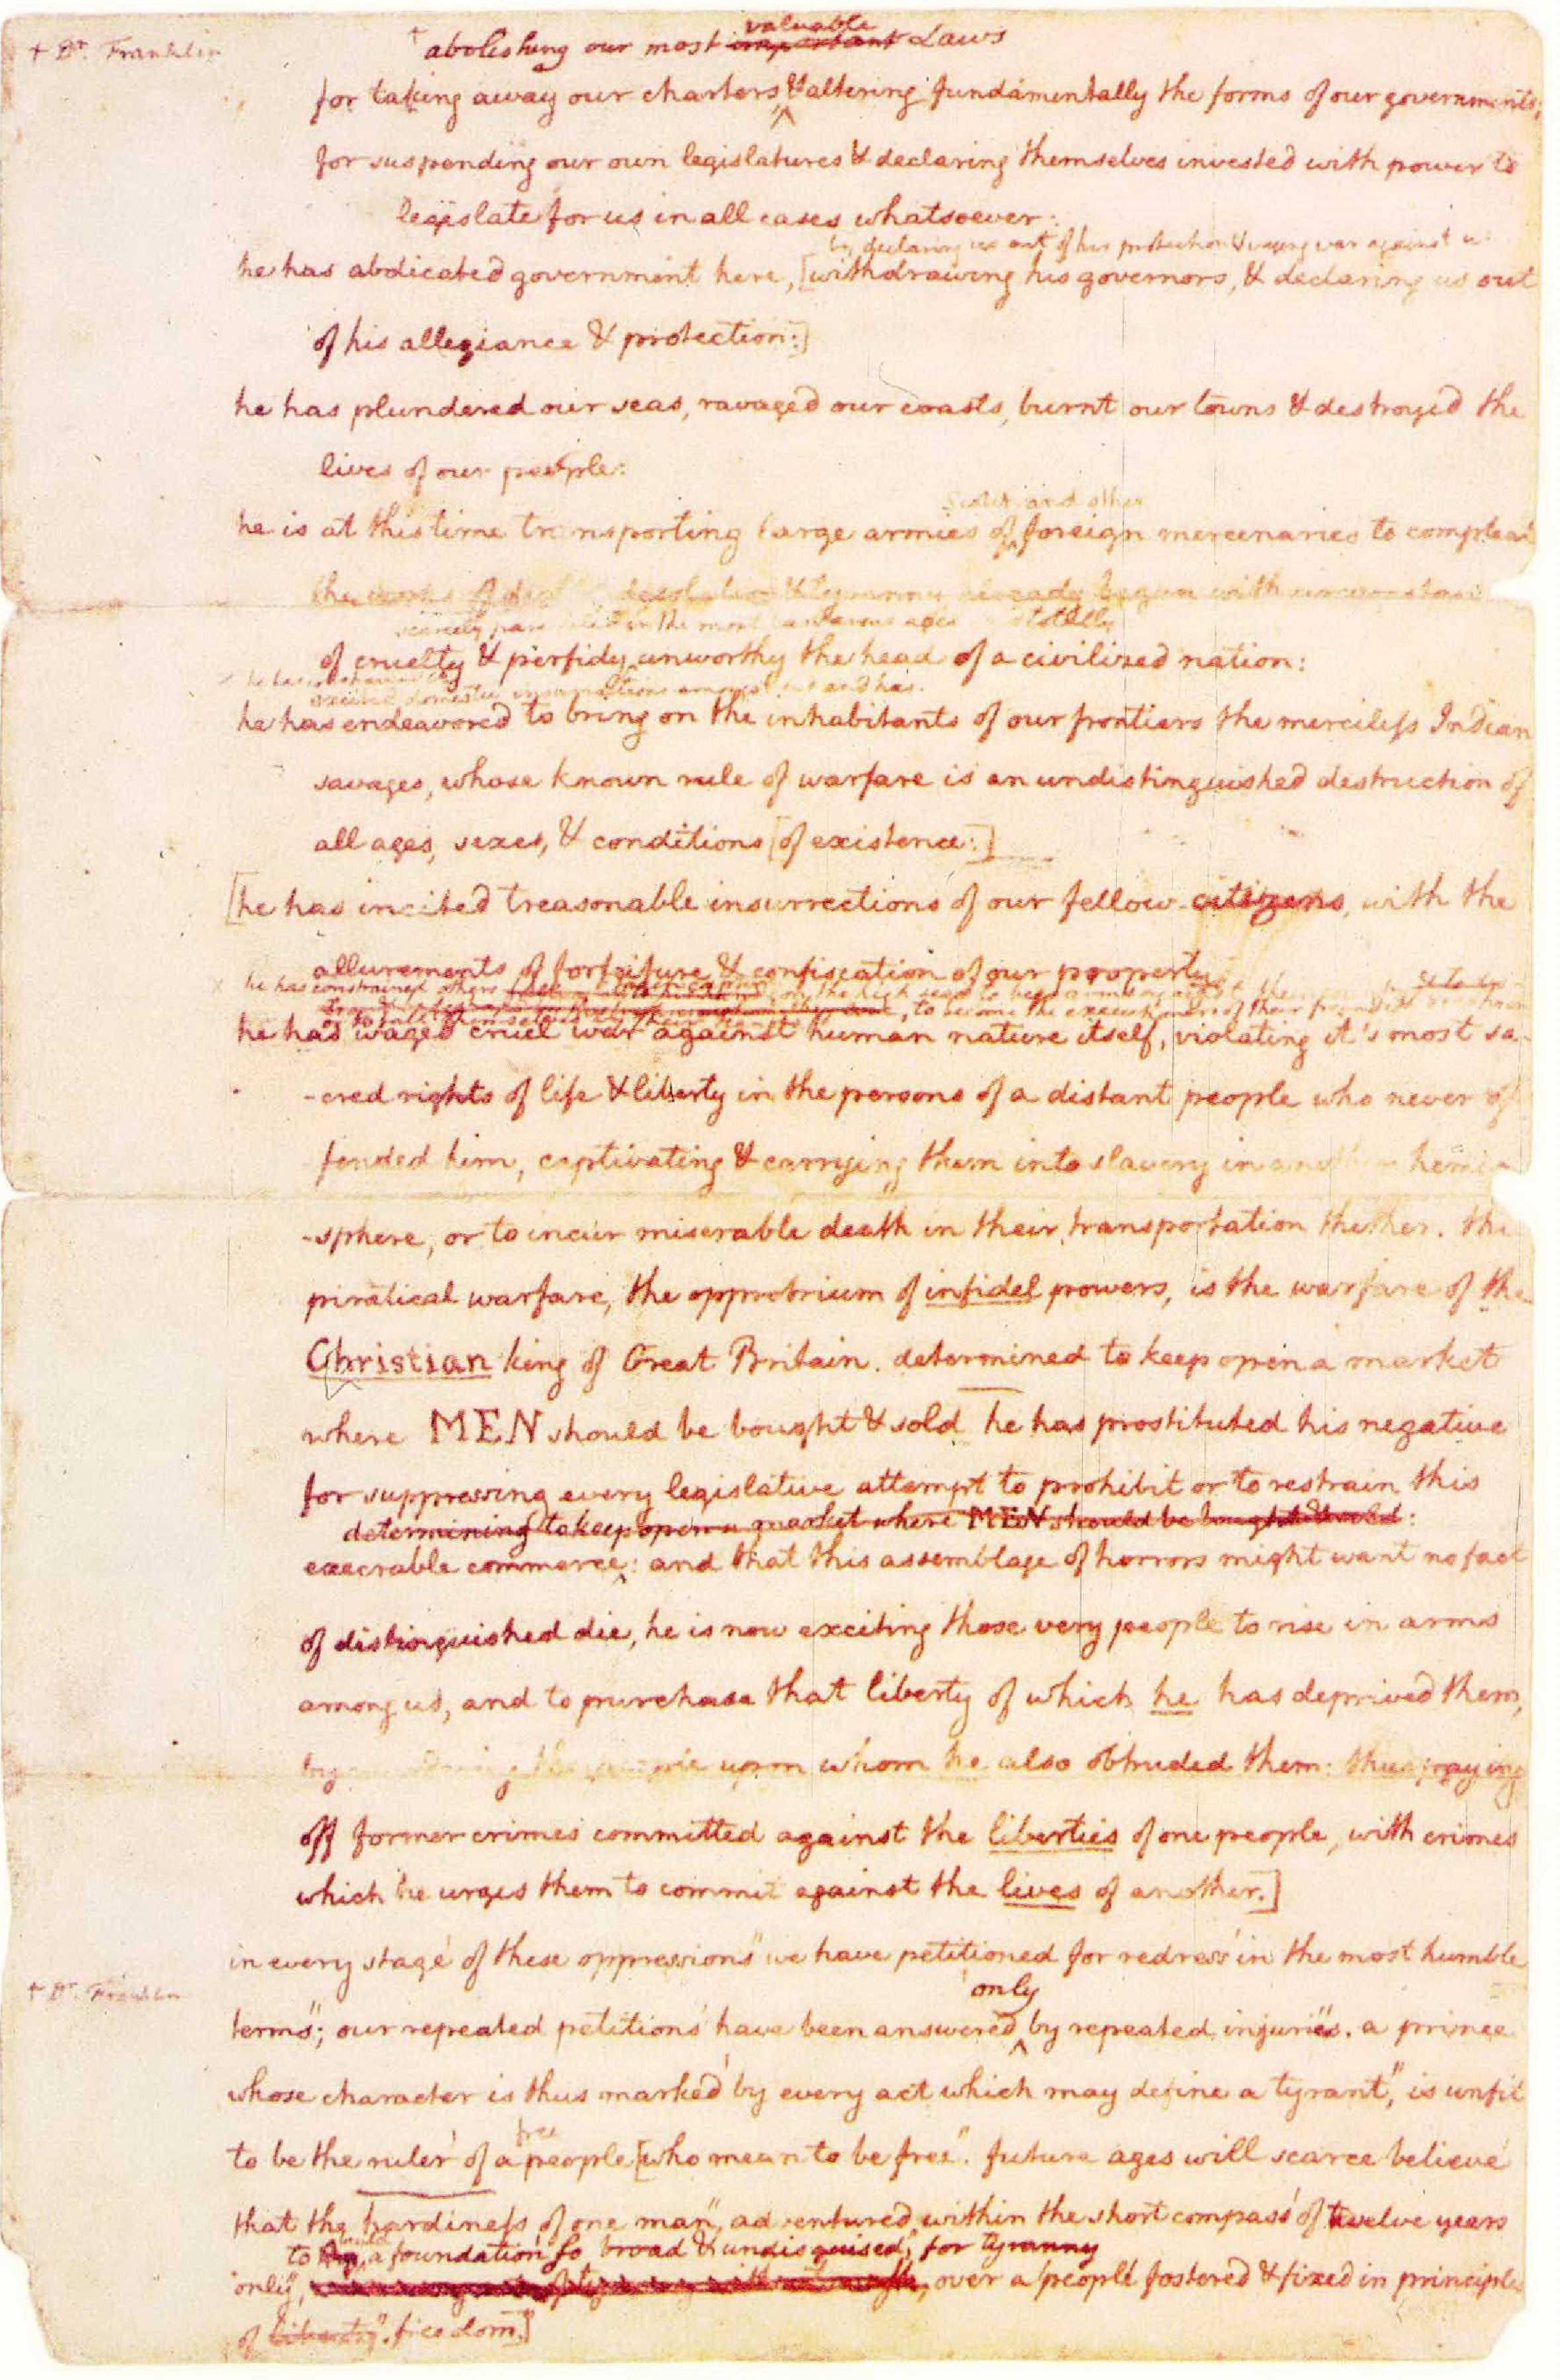 + Dr. Franklin
+ abolishing our most important valuable Laws
for taking away our charters, & altering fundamentally the forms of our governments;
for suspending our own legislatures & declaring themselves invested with power to
legislate for us in all cases whatsoever:
by declaring us out of his protection & waging war against us
he has abdicated government here, [withdrawing his governors, & declaring us out
of his allegiance & protection:]
he has plundered our seas, ravaged our coasts, burnt our towns & destroyed the
lives of our people:
Scotch and other
he is at this time transporting large armies of foreign mercenaries to compleat
the works of desolation & tyranny already begun with circumstances
scarcely paralleled in the most barbarous ages totally
of cruelty & perfidy unworthy the head of a civilized nation:
he has
excited domestic insurrections amongst us and has
he has endeavored to bring on the inhabitants of our frontiers the merciless Indian
savages, whose known rule of warfare is an undistinguished destruction of
all ages, sexes, & conditions [of existence:]
[he has incited treasonable insurrections of our fellow-citizens, with the
allurements of forfeiture & confiscation of our property
he has constrained others on the high seas to bear arms against
to become the executioners of their friends
he has waged cruel war against human nature itself, violating it's most sa-
-cred rights of life & liberty in the persons of a distant people who never of
fended him, captivating & carrying them into slavery in another hemi-
-sphere, or to incur miserable death in their transportation thither. this
piratical warfare, the opprobrium of infidel powers, is the warfare of the
Christian king of Great Britain. determined to keep open a market
where MEN should be bought & sold he has prostituted his negative
for suppressing every legislative attempt to prohibit or to restrain this
determining to keep open a market where MEN should be bought & sold:
execrable commerce: and that this assemblage of horrors might want no fact
of distinguished die, he is now exciting those very people to rise in arms
among us, and to purchase that liberty of which he has deprived them,
by the people upon whom he also obtruded them: thus paying
off former crimes committed against the liberties of one people, with crimes
which he urges them to commit against the lives of another.]
in every stage of these oppressions" we have petitioned for redress in the most humble
+ Dr. Franklin
only
terms"; our repeated petitions have been answered by repeated injuries. a prince
whose character is thus marked by every act which may define a tyrant," is unfit
free
to be the ruler of a people [who mean to be free". future ages will scarce believe
that the hardiness of one man," adventured within the short compass of twelve years
to build a foundation so broad & undisguised, for tyranny
only", over a people fostered & fixed in principles
of liberty". freedom.]